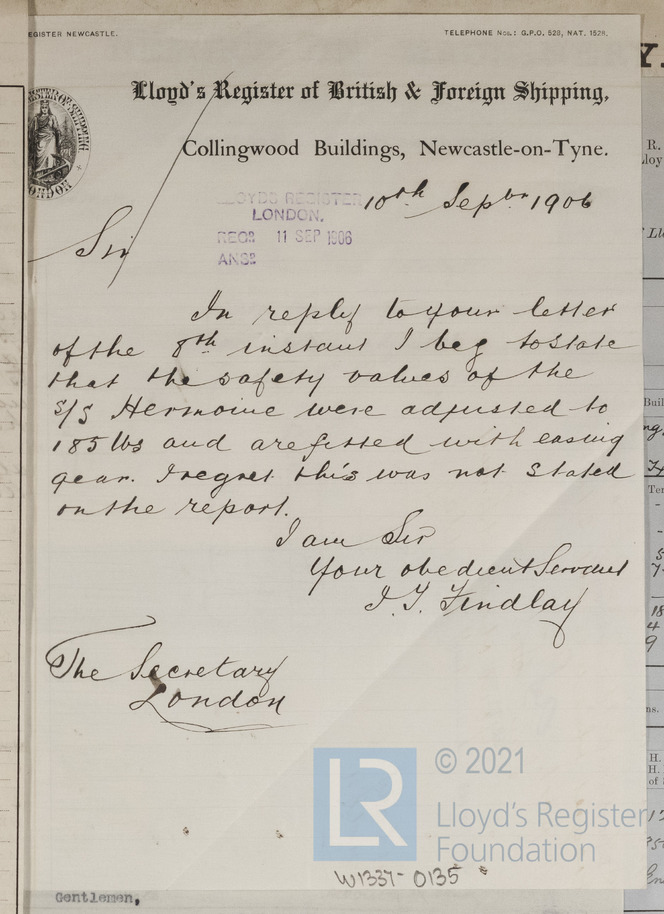 EGISTER NEWCASTLE.
TELEPHONE Nos.: G.P.O. 528, NAT. 1528.
Lloyd's Register of British & Foreign Shipping,
Collingwood Buildings, Newcastle-on-Tyne.
LONDON
LLOYDS REGISTER
LONDON.
REC? 11 SEP 1906
ANS?
10th Sepbr 1906
Sir
In reply to your letter
of the 8th instant I beg to state
that the safety valves of the
S/S Hermoine were adjusted to
185 lbs and are fitted with easing
gear. I regret this was not stated
on the report.
I am Sir
Your obedient Servant
J. T. Findlay
The Secretary
London
LR
© 2021
Lloyd's Register
Foundation
W1337-0135
Gentlemen,